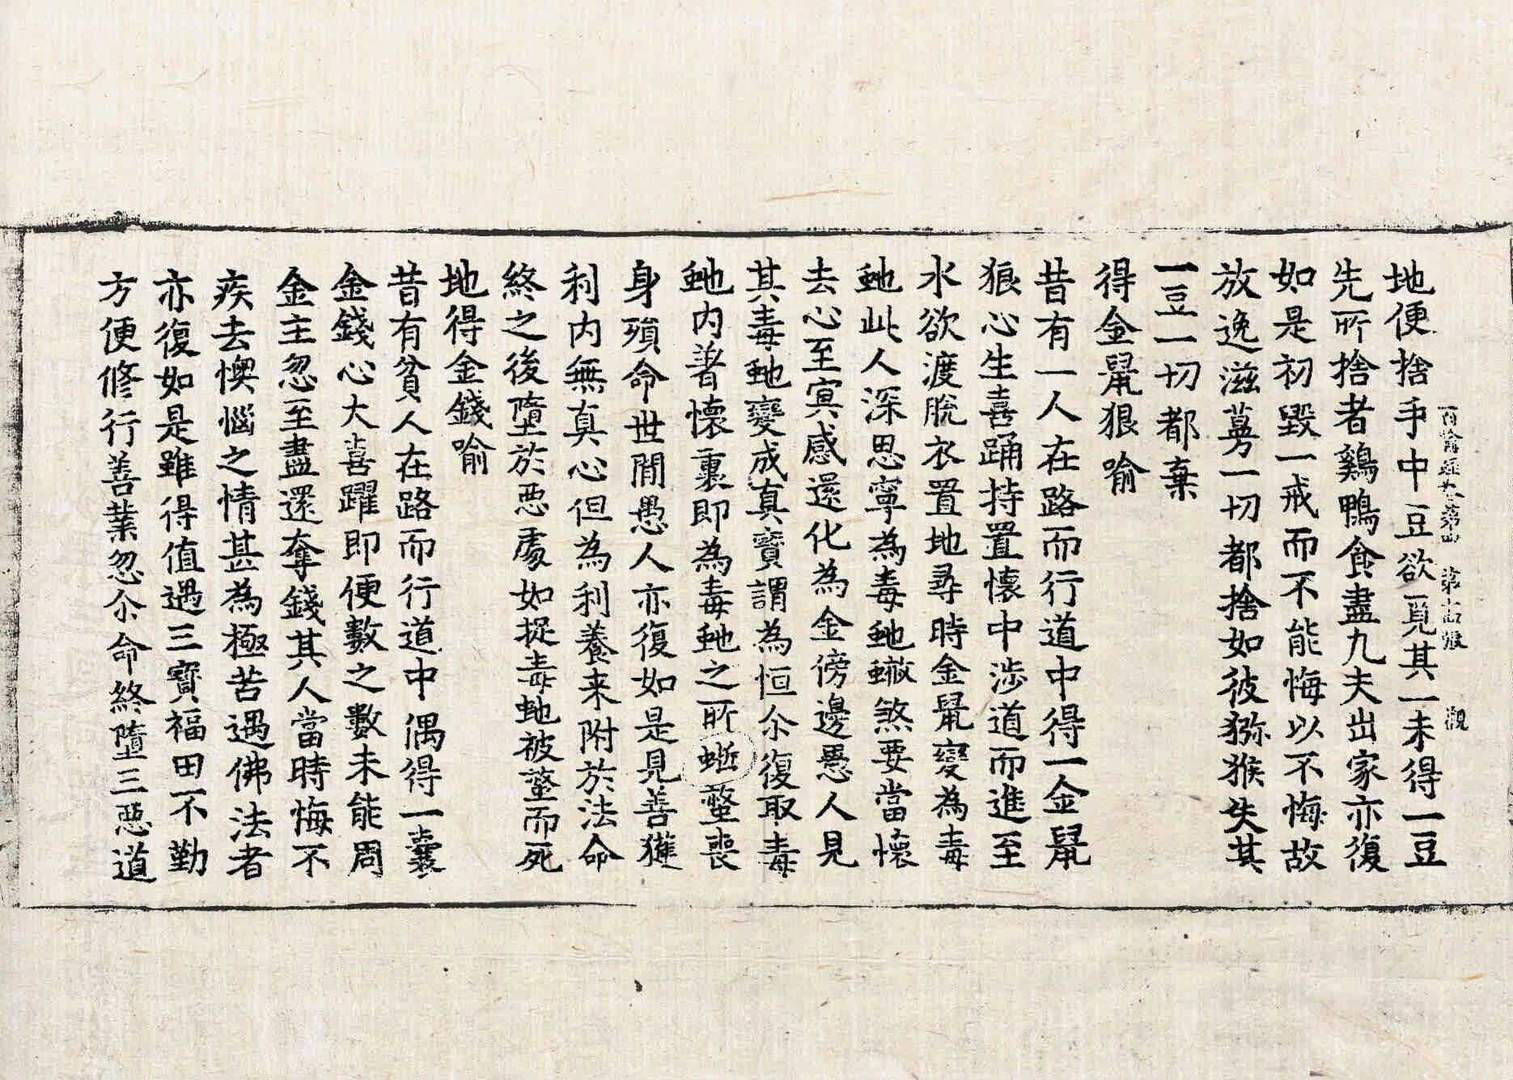 百喻經卷第四 第十六張 觀
地便捨手中豆欲覓其一未得一豆
先所捨者鷄鴨食盡凡夫出家亦復
如是初毀一戒而不能悔以不悔故
放逸滋蔓一切都捨如彼獼猴失其
一豆一切都棄
得金鼠狼喻
昔有一人在路而行道中得一金鼠
狼心生喜踊持置懷中涉道而進至
水欲渡脫衣置地尋時金鼠變為毒
虵此人深思寧為毒虵螫煞要當懷
去心至冥感還化為金傍邊愚人見
其毒虵變成真寶謂為恒尒復取毒
虵內著懷裏即為毒虵之所蜇螫喪
身殞命世間愚人亦復如是見善獲
利內無真心但為利養来附於法命
終之後墮於惡處如捉毒虵被螫而死
地得金錢喻
昔有貧人在路而行道中偶得一囊
金錢心大喜躍即便數之數未能周
金主忽至盡還奪錢其人當時悔不
疾去懊惱之情甚為極苦遇佛法者
亦復如是雖得值遇三寶福田不勤
方便修行善業忽尒命終墮三惡道